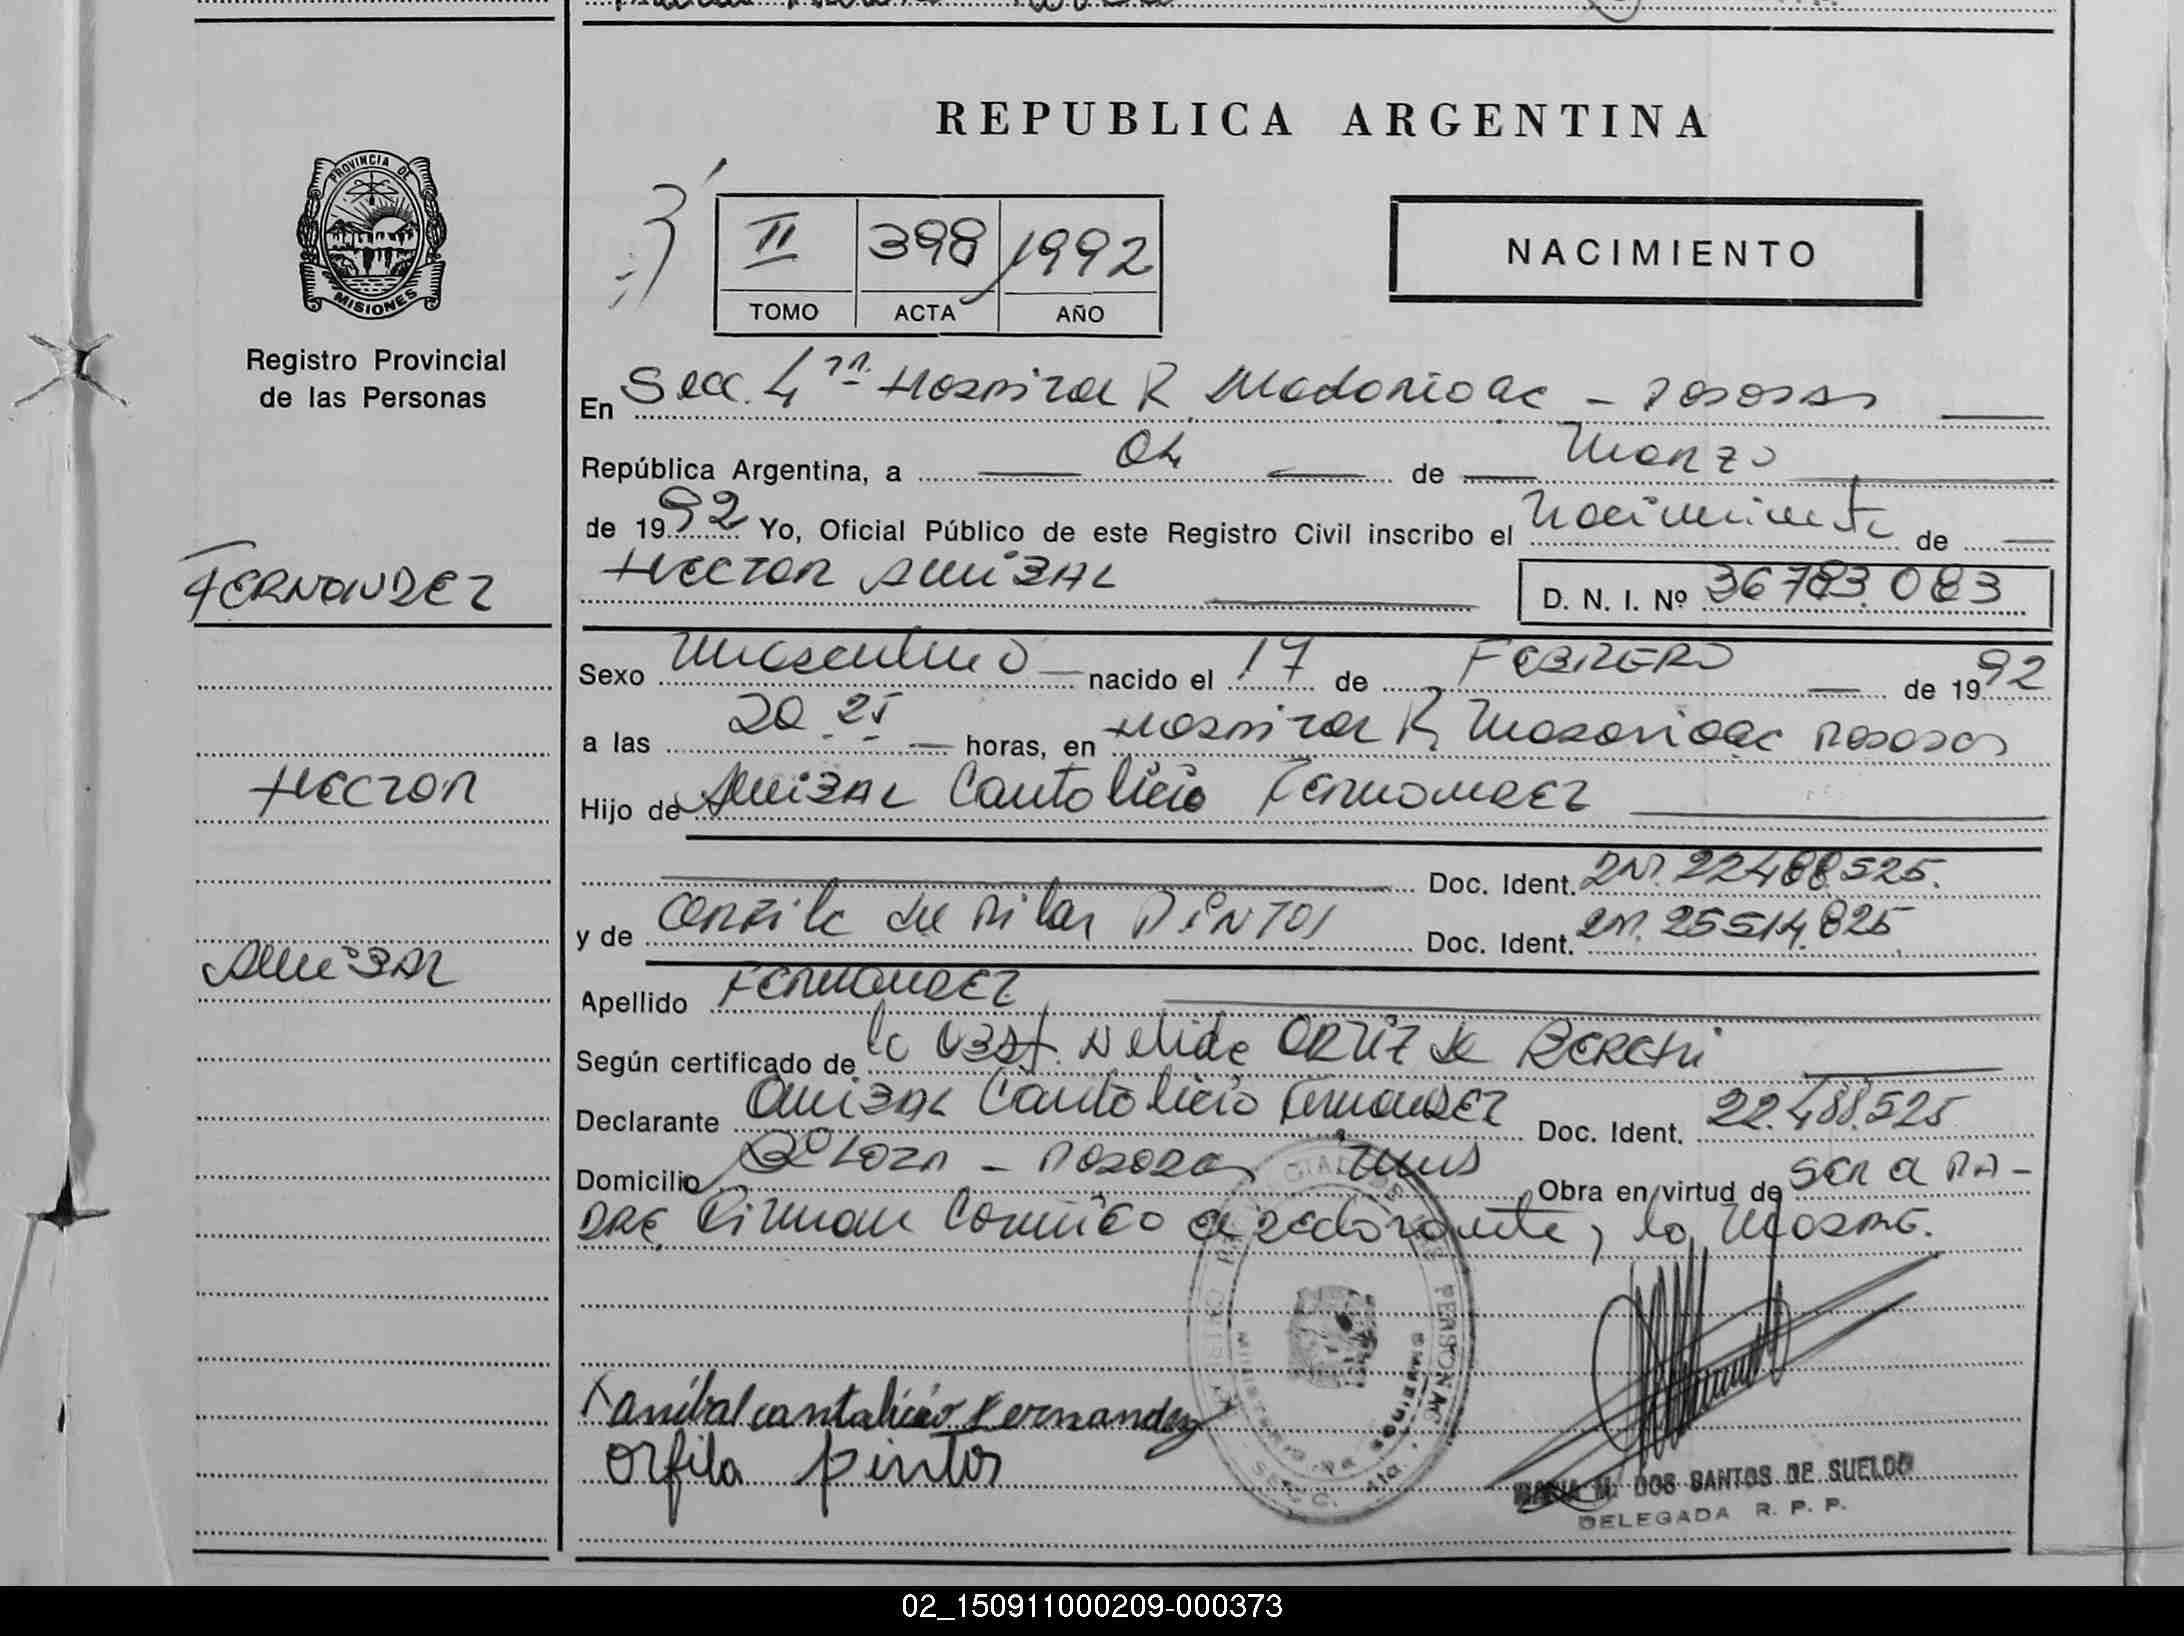 REPUBLICA ARGENTINA
PROVINCIA DE
MISIONES
Registro Provincial
de las Personas
II 398 1992
TOMO ACTA AÑO
NACIMIENTO
En Secc. 4ta Hospital R. Madariaga - Posadas
República Argentina, a 04 de Marzo
de 1992 Yo, Oficial Público de este Registro Civil inscribo el Nacimiento de
HECTOR ANIBAL D. N. I. Nº 36783.083
FERNANDEZ
Sexo Masculino nacido el 17 de FEBRERO de 1992
a las 20.25 horas, en Hospital R. Madariaga Posadas
HECTOR
Hijo de ANIBAL Cantalicio FERNANDEZ
Doc. Ident. DNI. 22488.525.
y de del Pilar PINTOS Doc. Ident. DNI. 25514.825
ANIBAL
Apellido FERNANDEZ
Según certificado de la OBST. Nelida ORTIZ de
Declarante ANIBAL Cantalicio FERNANDEZ Doc. Ident. 22.488.525
Domicilio Posadas Mnes Obra en virtud de SER el PA-
DRE. Firman Conmigo el declarante, la MADRE.
anibal cantalicio Fernandez
orfila pintos
PERSONAS
MISIONES
M. DOS SANTOS DE SUELDO
DELEGADA R. P. P.
02_150911000209-000373